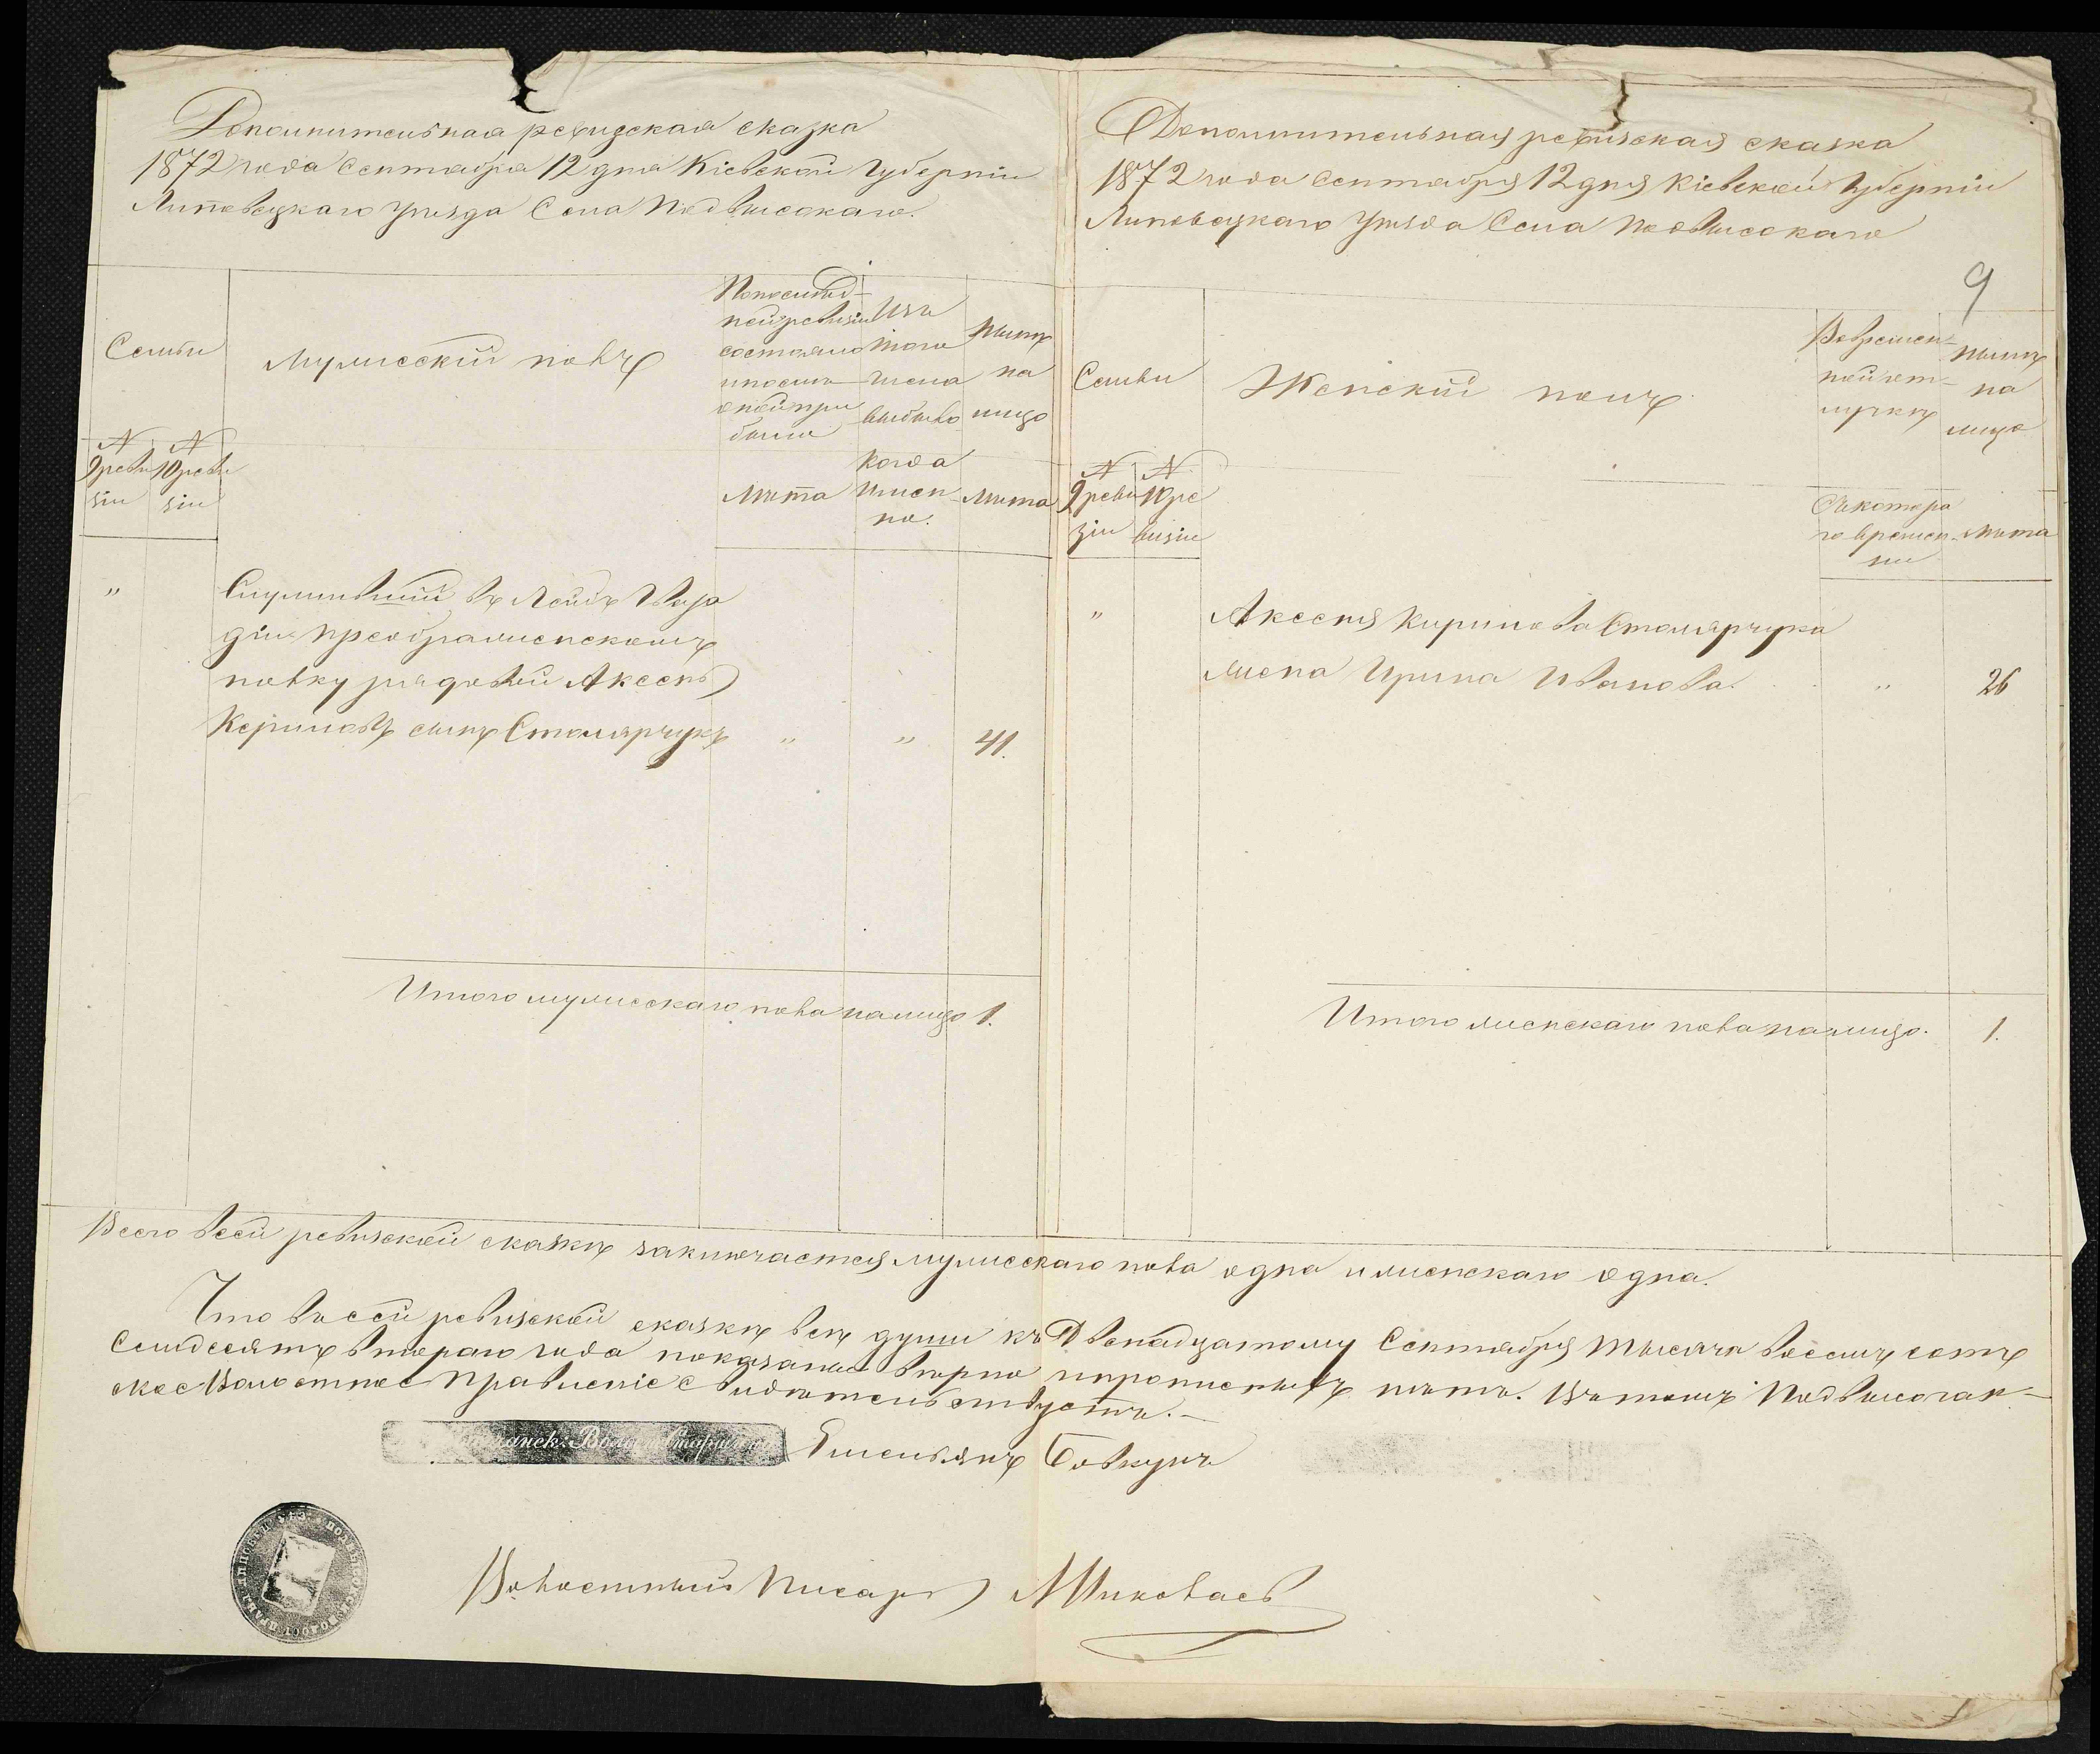 Дополнительная ревизская сказка
1872 года Сентября 12 дня Кіевской Губерніи
Липовецкаго уѣзда Села Подвысокаго.
Семьи
Мужескій полъ
По послѣд-
ней ревизіи
состояло
и после
оной при
было
Изъ
того
числа
выбыло
Нынѣ
на
лицо
№ 9 реви
зіи
№ 10 реви
зіи
Лѣта
когда
имен-
но.
Лѣта
"
Служившій въ Лейбъ Гвар
діи Преображенскомъ
полку рядовый Аксенъ
Кириловъ сынъ Столярчукъ " " 41.
Итого мужескаго пола на лицо 1.
Дополнительная ревизская сказка
1872 года Сентября 12 дня Кіевской Губерніи
Липовецкаго Уѣзда Села Подвысокаго
9
Семьи
Женскій полъ
Во времен-
ной от-
лучкѣ
Нынѣ
на
лицо
№ 9 реви
зіи
№ 10 ре
визіи
Съ котора
го времен-
ни
Лѣта
"
Аксена Кирилова Столярчука
жена Ирина Иванова. " 26
Итого женскаго пола на лицо. 1.
Всего въ сей ревизской сказкѣ заключается мужескаго пола одна и женскаго одна.
Что въ сей ревизской сказкѣ всѣ души къ Двенадцатому Сентября тысяча восемь сотъ
Семдесятъ втораго года показаны вѣрно и прописныхъ нѣтъ. Въ томъ Подвысочан-
ское Волостное Правленіе свидѣтельствуетъ.-
Волост. Старшина Емельянъ Бовкунъ
Волостный Писарь Николаевъ